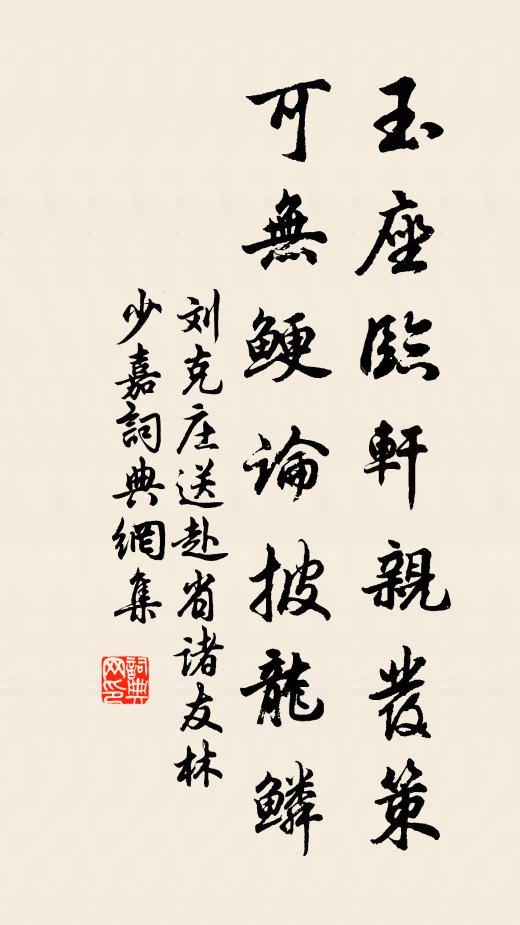 玉座臨軒親發策
可無鯁論披龍鱗
刘克庄送赴省诸友林
少嘉詞典網集
詞典网印